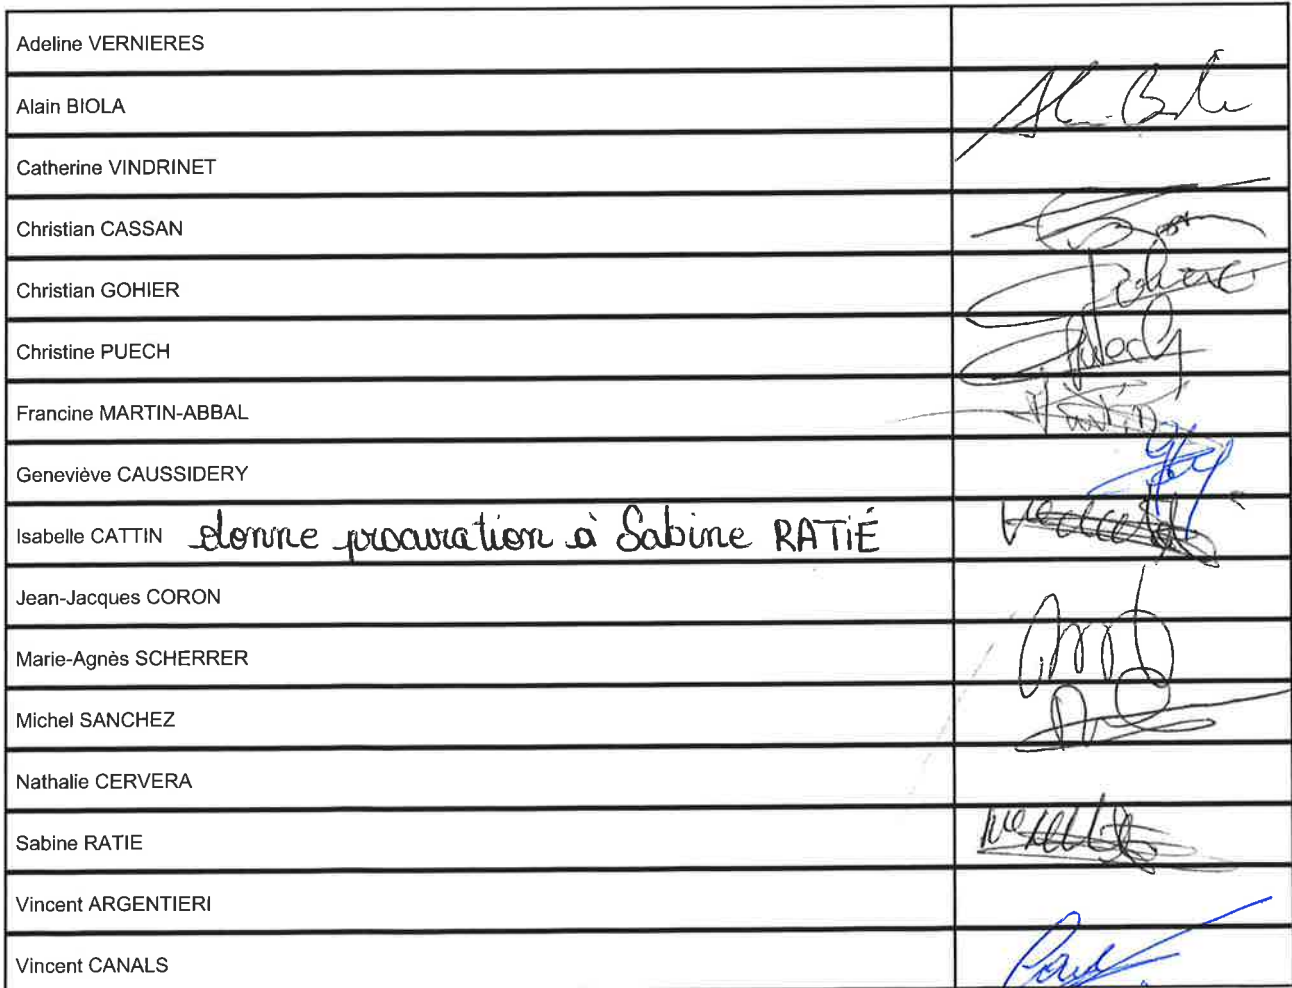 Adeline VERNIERES
Alain BIOLA
Catherine VINDRINET
Christian CASSAN
Christian GOHIER
Christine PUECH
Francine MARTIN-ABBAL
Geneviève CAUSSIDERY
Isabelle CATTIN donne procuration à Sabine RATIÉ
Jean-Jacques CORON
Marie-Agnès SCHERRER
Michel SANCHEZ
Nathalie CERVERA
Sabine RATIE
Vincent ARGENTIERI
Vincent CANALS